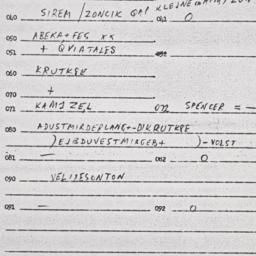 040 SIREM / ZONCIK GAP KLEJNE
042 0
050 ABEKA + FES XX
051 + QVIATALES
060 KRUTKEK
070 +
071 KAMJ ZEL 072 SPENCER = -
080 ADUSTMIRDERLANG+-DIKRUTKPE
)EJBDUVESTMIRGEB+ )-VOLST
081 — 082 0
090 VELIJESONTON
091 — 092 0